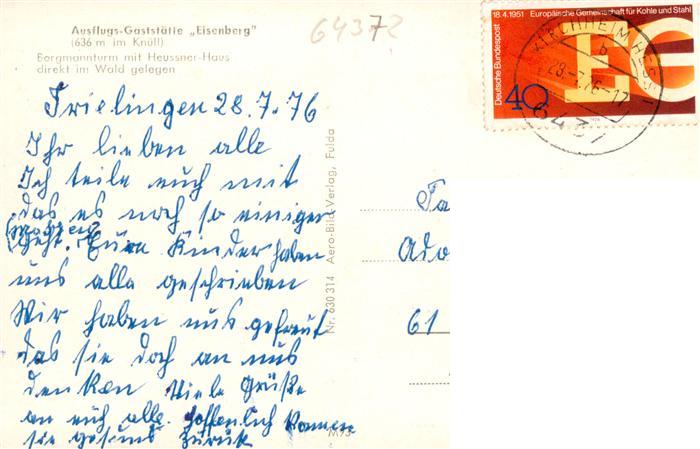 Ausflugs-Gaststätte „Eisenberg"
(636 m im Knüll)
Borgmannturm mit Heussner-Haus
direkt im Wald gelegen
64372
18.4.1951 Europäische Gemeinschaft für Kohle und Stahl
Deutsche Bundespost
40
EG
KIRCHHEIM, HESS
b
28.-7.76-17
643
Frielingen 28.7.76
Ihr lieben alle
Ich teile euch mit
das es noch so einiger
maßen
geht. Eure Kinder haben
uns alle geschrieben
Wir haben uns gefreut
das sie doch an uns
denken Viele Grüße
an euch alle. Hoffenlich kommen
sie gesund zurück
Nr. 630 314 Aero-Bild-Verlag, Fulda
Fa
Ado
61
M73